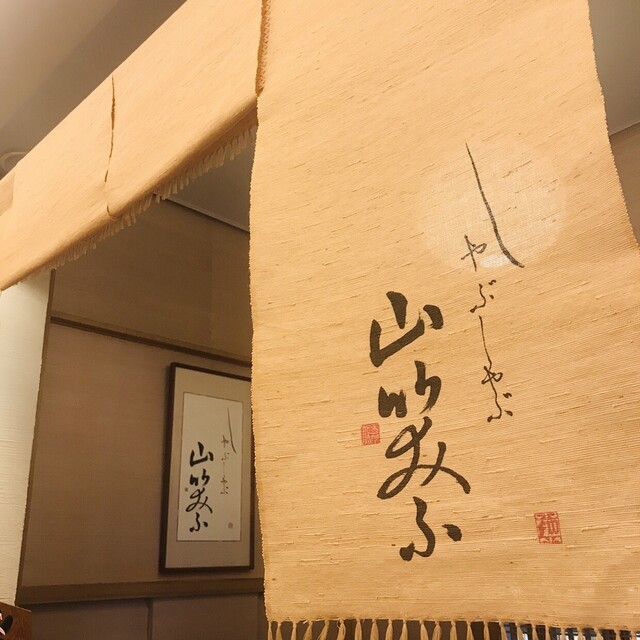 しゃぶしゃぶ
山笑ふ
しゃぶしゃぶ
山笑ふ